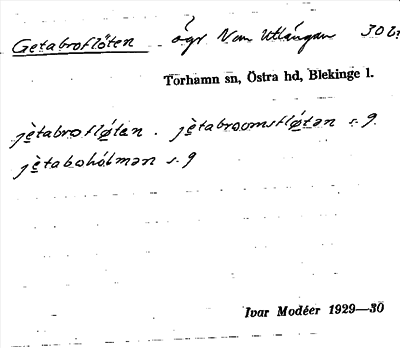 Getabroflöten ögr N om Utlängan
Torhamn sn, Östra hd, Blekinge l.
jètabrofløtən . jètabroomsfløtən s. 9
jètabohólmən s. 9
Ivar Modéer 1929—30